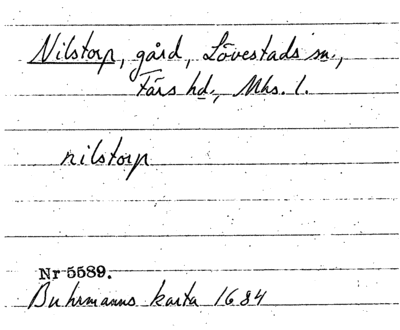 Nilstorp, gård, Lövestads sn.,
Färs hd., Mhs. l.
nilstorp
Nr 5589.
Buhrmanns karta 1684